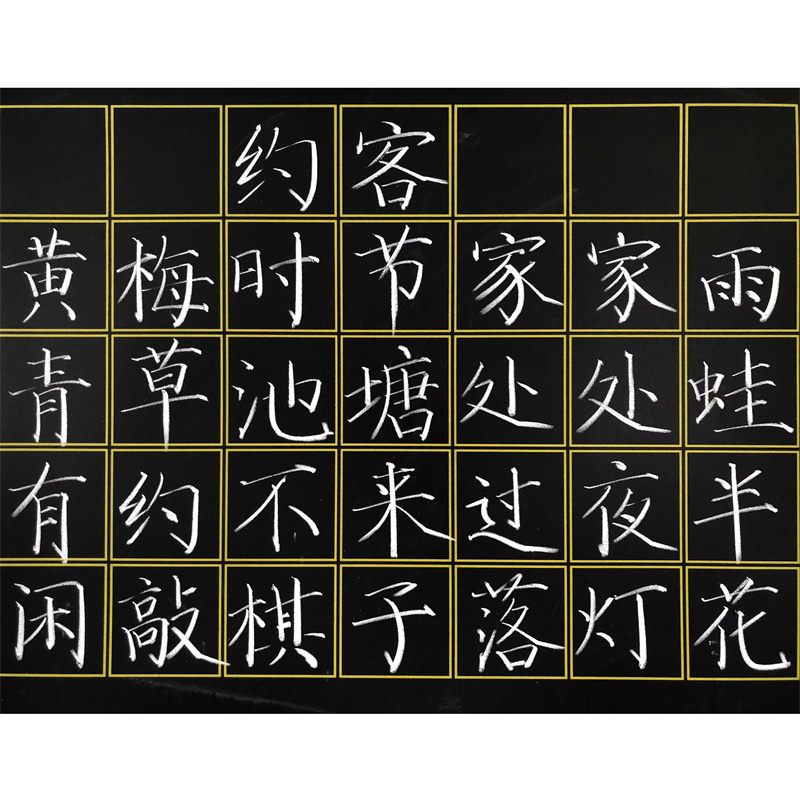 约客
黄梅时节家家雨
青草池塘处处蛙
有约不来过夜半
闲敲棋子落灯花